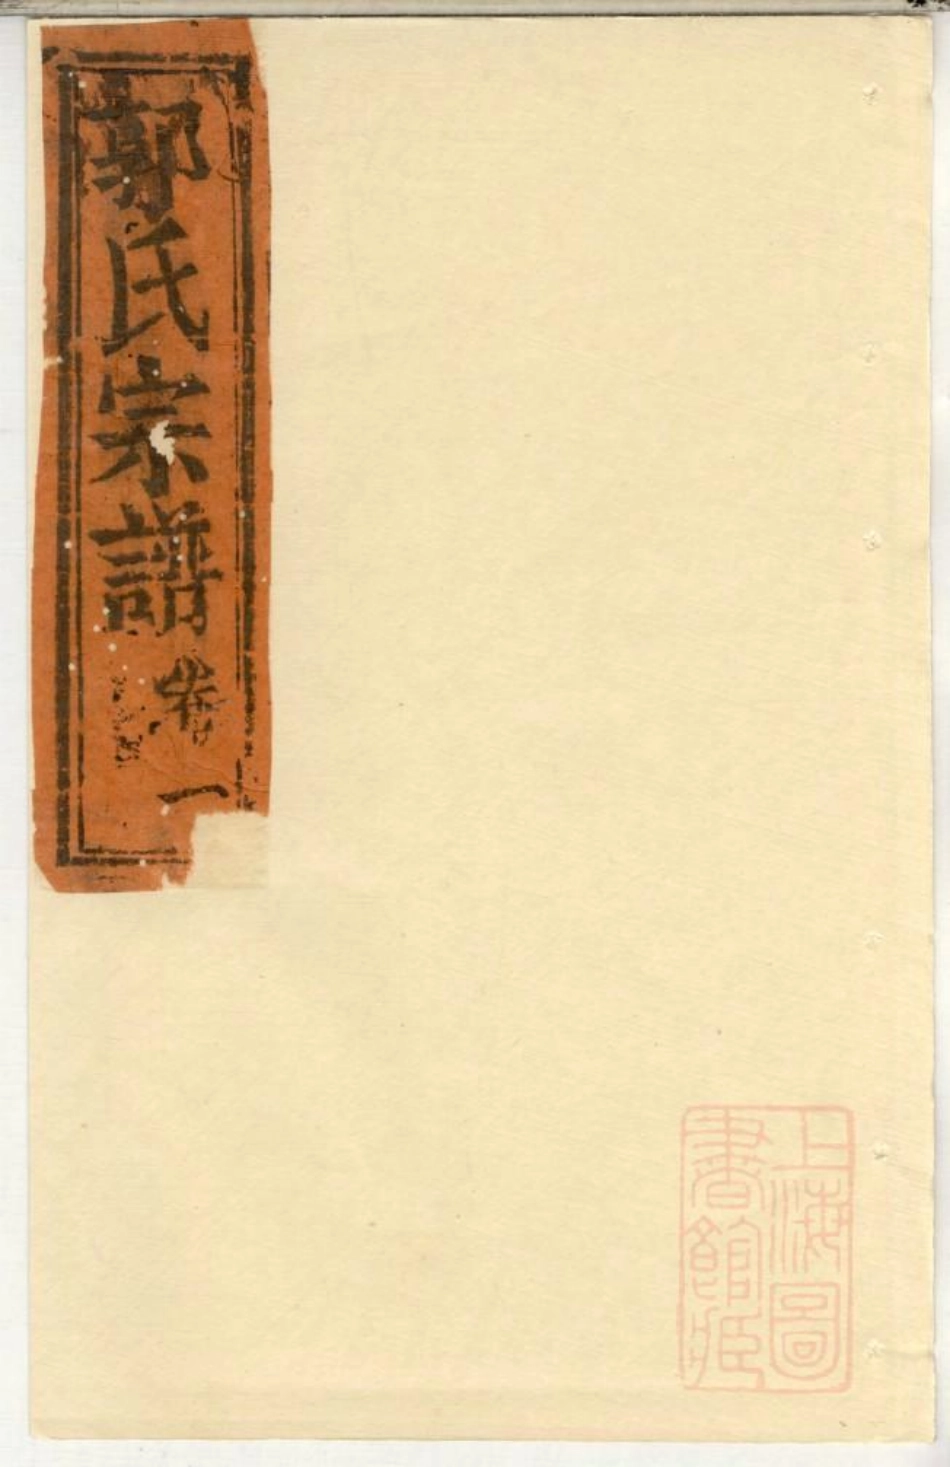 郭氏宗譜 卷一
上海圖
書館藏